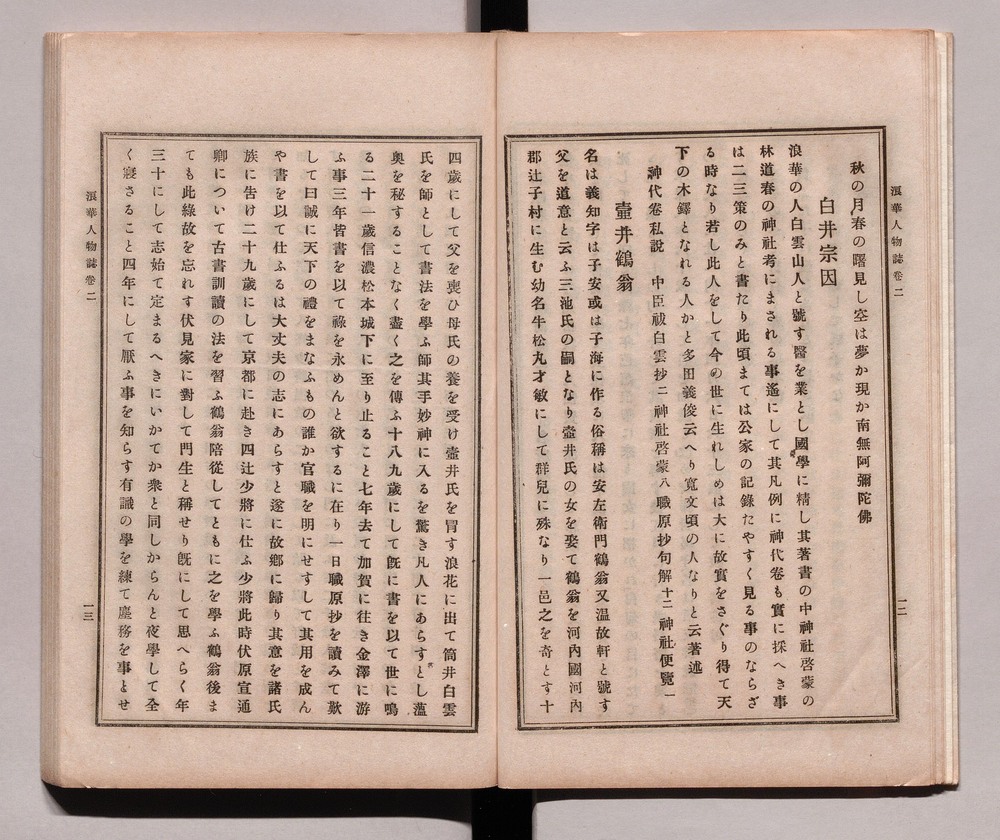 浪華人物誌卷二
一二
秋の月春の曙見し空は夢か現か南無阿彌陀佛
白井宗因
浪華の人白雲山人と號す醫を業とし國學に精し其著書の中神社啓蒙の
林道春の神社考にまされる事遙にして其凡例に神代卷も實に採へき事
は二三策のみと書たり此頃まては公家の記錄たやすく見る事のならざ
る時なり若し此人をして今の世に生れしめは大に故實をさぐり得て天
下の木鐸となれる人かと多田義俊云へり寬文頃の人なりと云著述
神代卷私說　中臣祓白雲抄二　神社啓蒙八　職原抄句解十二　神社便覽一
壺井鶴翁
名は義知字は子安或は子海に作る俗稱は安左衛門鶴翁又溫故軒と號す
父を道意と云ふ三池氏の嗣となり壺井氏の女を娶て鶴翁を河內國河內
郡辻子村に生む幼名牛松丸才敏にして群兒に殊なり一邑之を奇とす十
四歲にして父を喪ひ母氏の養を受け壺井氏を冒す浪花に出て筒井白雲
氏を師として書法を學ふ師其手妙神に入るを驚き凡人にあらすとし薀
奧を秘することなく盡く之を傳ふ十八九歲にして旣に書を以て世に鳴
る二十一歲信濃松本城下に至り止ること七年去て加賀に往き金澤に游
ふ事三年皆書を以て祿を永めんと欲するに在り一日職原抄を讀みて歎
して曰誠に天下の禮をまなふもの誰か官職を明にせすして其用を成ん
や書を以て仕ふるは大丈夫の志にあらすと遂に故鄕に歸り其意を諸氏
族に告け二十九歲にして京都に赴き四辻少將に仕ふ少將此時伏原宣通
卿について古書訓讀の法を習ふ鶴翁陪從してともに之を學ふ鶴翁後ま
ても此緣故を忘れす伏見家に對して門生と稱せり旣にして思へらく年
三十にして志始て定まるへきにいかてか衆と同しからんと夜學して全
く寢さること四年にして厭ふ事を知らす有識の學を練て塵務を事とせ
浪華人物誌卷二
一三